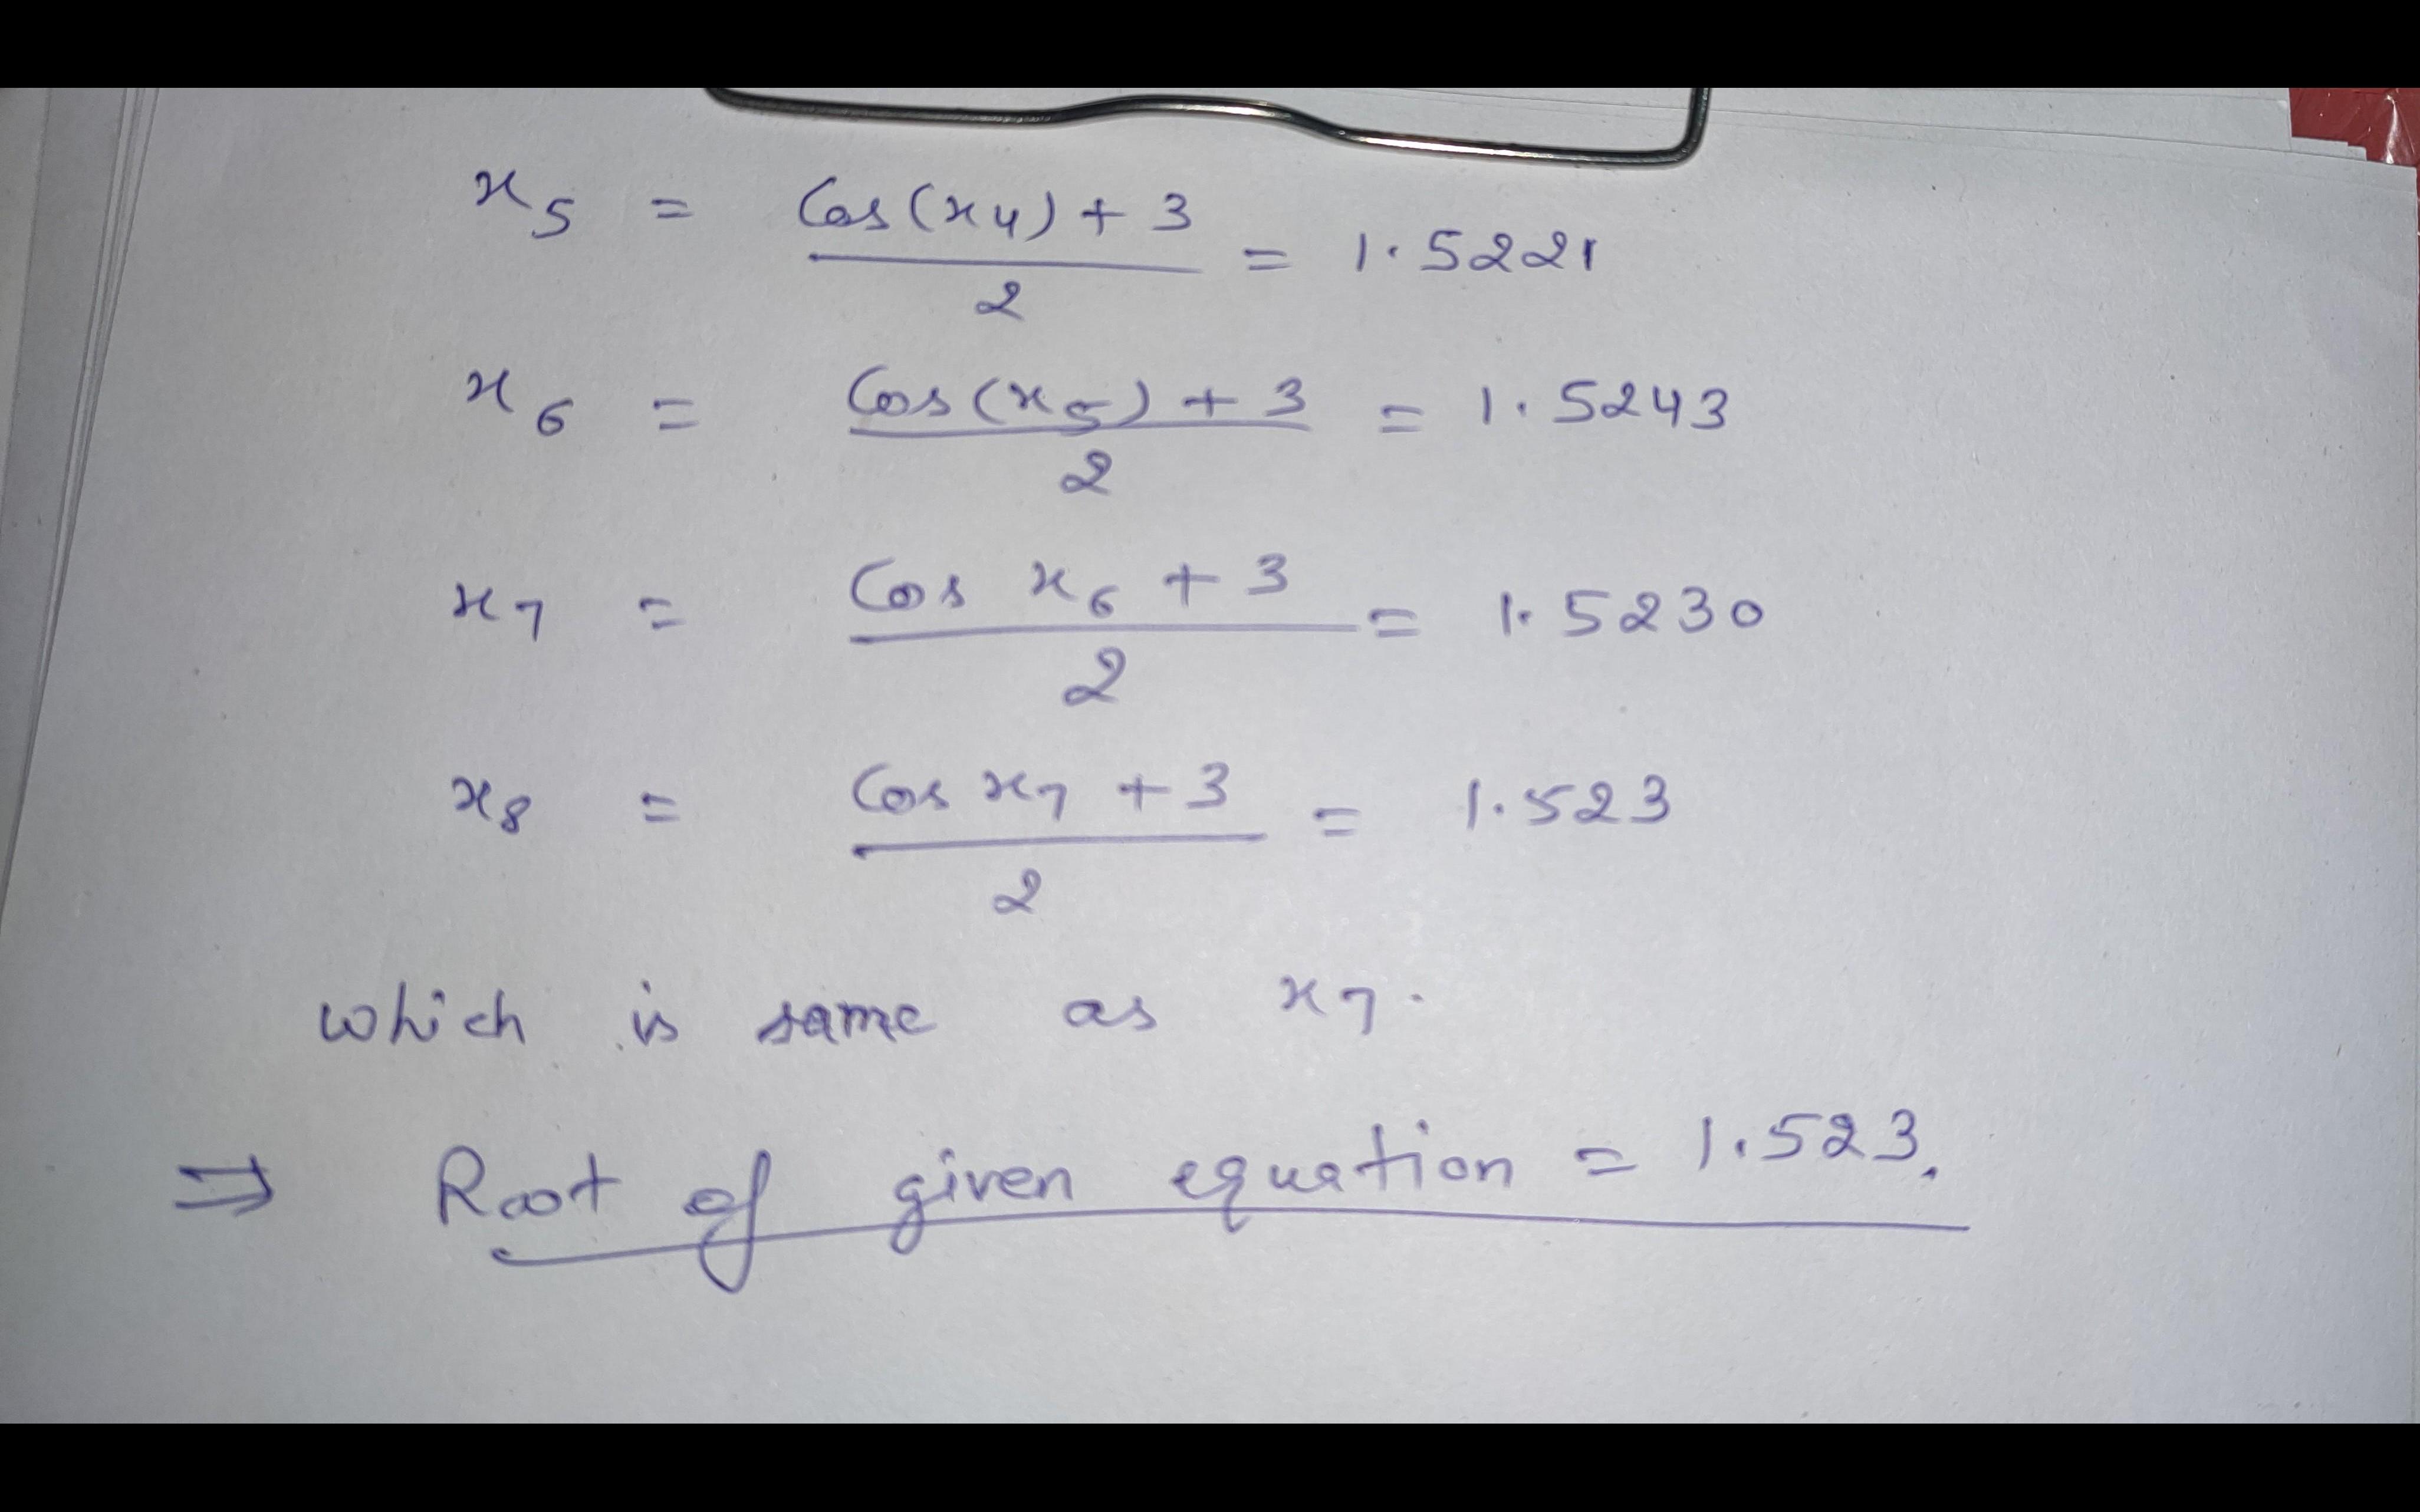 x5 = Cos(x4) + 3 / 2 = 1.5221
x6 = Cos(x5) + 3 / 2 = 1.5243
x7 = Cos x6 + 3 / 2 = 1.5230
x8 = Cos x7 + 3 / 2 = 1.523
which is same as x7.
⇒ Root of given equation = 1.523.